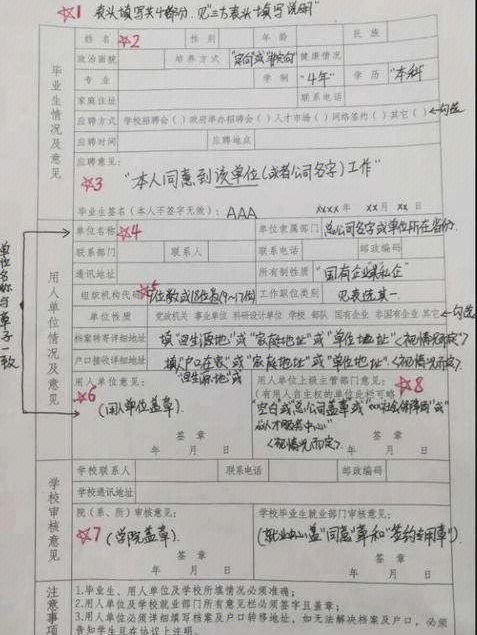 ☆1 表头填写共4部分.见"三方表头填写说明"
毕业生情况及意见
姓名 ☆2 性别 年龄 民族
政治面貌 培养方式 "定向"或"非定向" 健康情况
专业 学制 "4年" 学历 "本科"
家庭住址 联系电话
应聘方式 学校招聘会( )政府举办招聘会( )人才市场( )网络签约( )其它( ) ←勾选
应聘时间 应聘地点
应聘意见:
☆3 "本人同意到该单位(或者公司名字)工作"
毕业生签名(本人不签字无效): AAA xxxx年 xx月 xx日
单位名称与章子一致
用人单位情况及意见
单位名称 ☆4 单位隶属部门 总公司名字或单位所在省份.
联系部门 联系人 联系电话 邮政编码
通讯地址 所有制性质 "国有企业"或"私企"
组织机构代码 ☆5 9位数或18位(9~17位) 工作职位类别 见表选其一
单位性质 党政机关 事业单位 科研设计单位 学校 部队 国有企业 非国有企业 其它 ←勾选
档案转寄详细地址 填"回生源地"或"家庭地址"或"单位地址"<视情况而定>
户口接收详细地址 填"户口在家"或"家庭地址"或"单位地址".<视情况而定>
"回生源地"或
用人单位意见:
☆6
(用人单位盖章)
签章
年 月 日
用人单位上级主管部门意见: ☆8
(有用人自主权的单位此栏可略)
"空白"或"总公司盖章"或"xx社会保障局"或
"xx人才服务中心"
<视情况而定>
签章
年 月 日
学校审核意见
学校联系人 联系电话 邮政编码
学校通讯地址
院(系、所)审核意见:
☆7 (学院盖章)
签章
年 月 日
学校毕业生就业部门审核意见:
(就业中心盖"同意"章和"签约专用章")
签章
年 月 日
注意事项
1.毕业生、用人单位及学校所填情况必须准确;
2.用人单位及学校就业部门所有意见栏必须签字且盖章;
3.用人单位必须详细填写档案及户口转移地址,如无法解决档案及户口,必须
告知学生且在协议上注明。